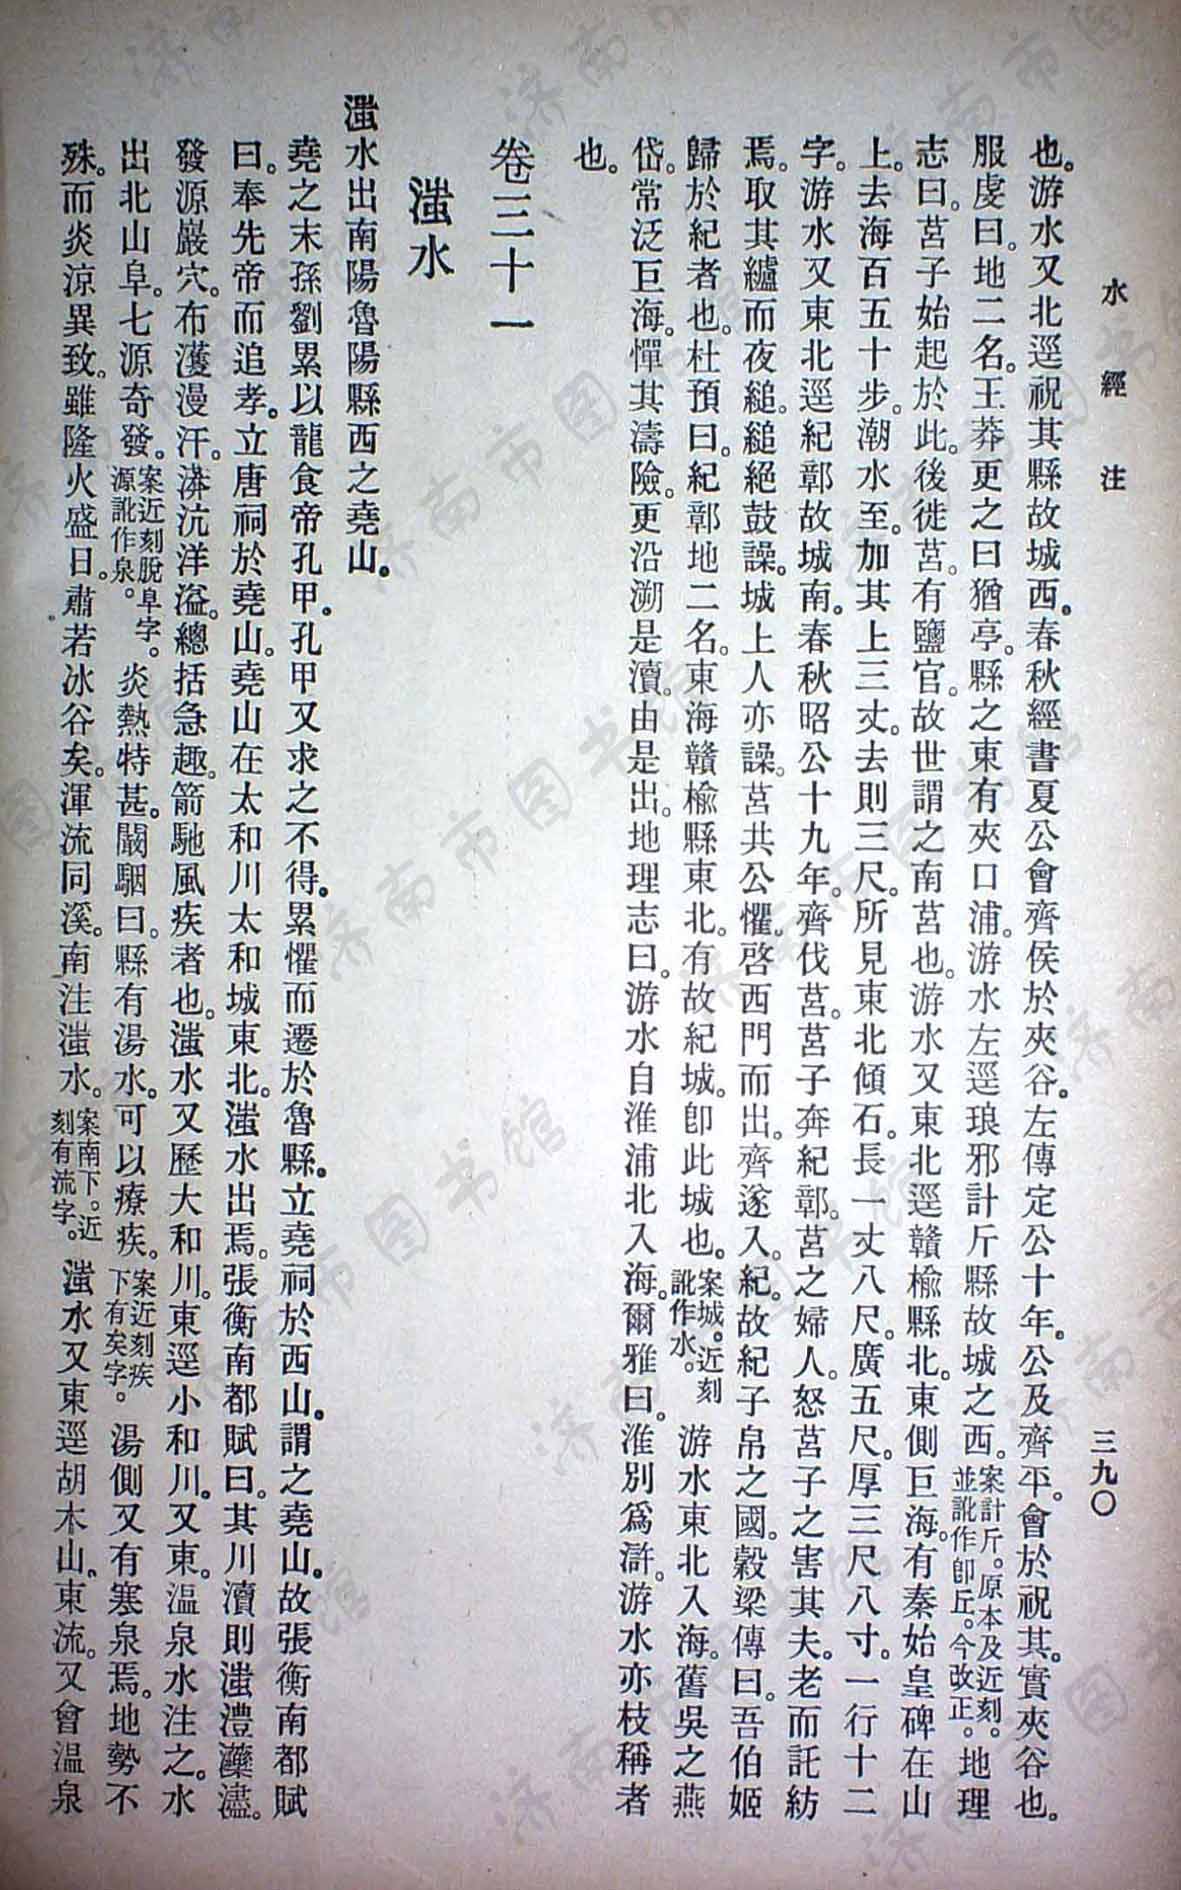 水經注
三九〇
也。游水又北逕祝其縣故城西。春秋經書夏公會齊侯於夾谷。左傳定公十年。公及齊平。會於祝其。實夾谷也。
服虔曰。地二名。王莽更之曰猶亭。縣之東有夾口浦。游水左逕琅邪計斤縣故城之西。案計斤。原本及近刻。並訛作卽丘。今改正。地理
志曰。莒子始起於此。後徙莒。有鹽官。故世謂之南莒也。游水又東北逕贛榆縣北。東側巨海。有秦始皇碑在山
上。去海百五十步。潮水至。加其上三丈。去則三尺。所見東北傾石。長一丈八尺。廣五尺。厚三尺八寸。一行十二
字。游水又東北逕紀鄣故城南。春秋昭公十九年。齊伐莒。莒子奔紀鄣。莒之婦人。怒莒子之害其夫。老而託紡
焉。取其纑而夜縋。縋絕鼓譟。城上人亦譟。莒共公懼。啓西門而出。齊遂入。紀。故紀子帛之國。穀梁傳曰。吾伯姬
歸於紀者也。杜預曰。紀鄣地二名。東海贛榆縣東北。有故紀城。卽此城也。案城。近刻訛作水。游水東北入海。舊吳之燕
岱。常泛巨海。憚其濤險。更沿溯是瀆。由是出。地理志曰。游水自淮浦北入海。爾雅曰。淮別爲滸。游水亦枝稱者
也。
卷三十一
滍水
滍水出南陽魯陽縣西之堯山。
堯之末孫劉累以龍食帝孔甲。孔甲又求之不得。累懼而遷於魯縣。立堯祠於西山。謂之堯山。故張衡南都賦
曰。奉先帝而追孝。立唐祠於堯山。堯山在太和川太和城東北。滍水出焉。張衡南都賦曰。其川瀆則滍澧藻濜。
發源巖穴。布濩漫汗。漭沆洋溢。總括急趣。箭馳風疾者也。滍水又歷大和川。東逕小和川。又東。温泉水注之。水
出北山阜。七源奇發。案近刻脫阜字。源訛作泉。炎熱特甚。闞駰曰。縣有湯水。可以療疾。案近刻疾下有矣字。湯側又有寒泉焉。地勢不
殊。而炎涼異致。雖隆火盛日。肅若冰谷矣。渾流同溪。南注滍水。案南下。近刻有流字。滍水又東逕胡木山。東流。又會温泉